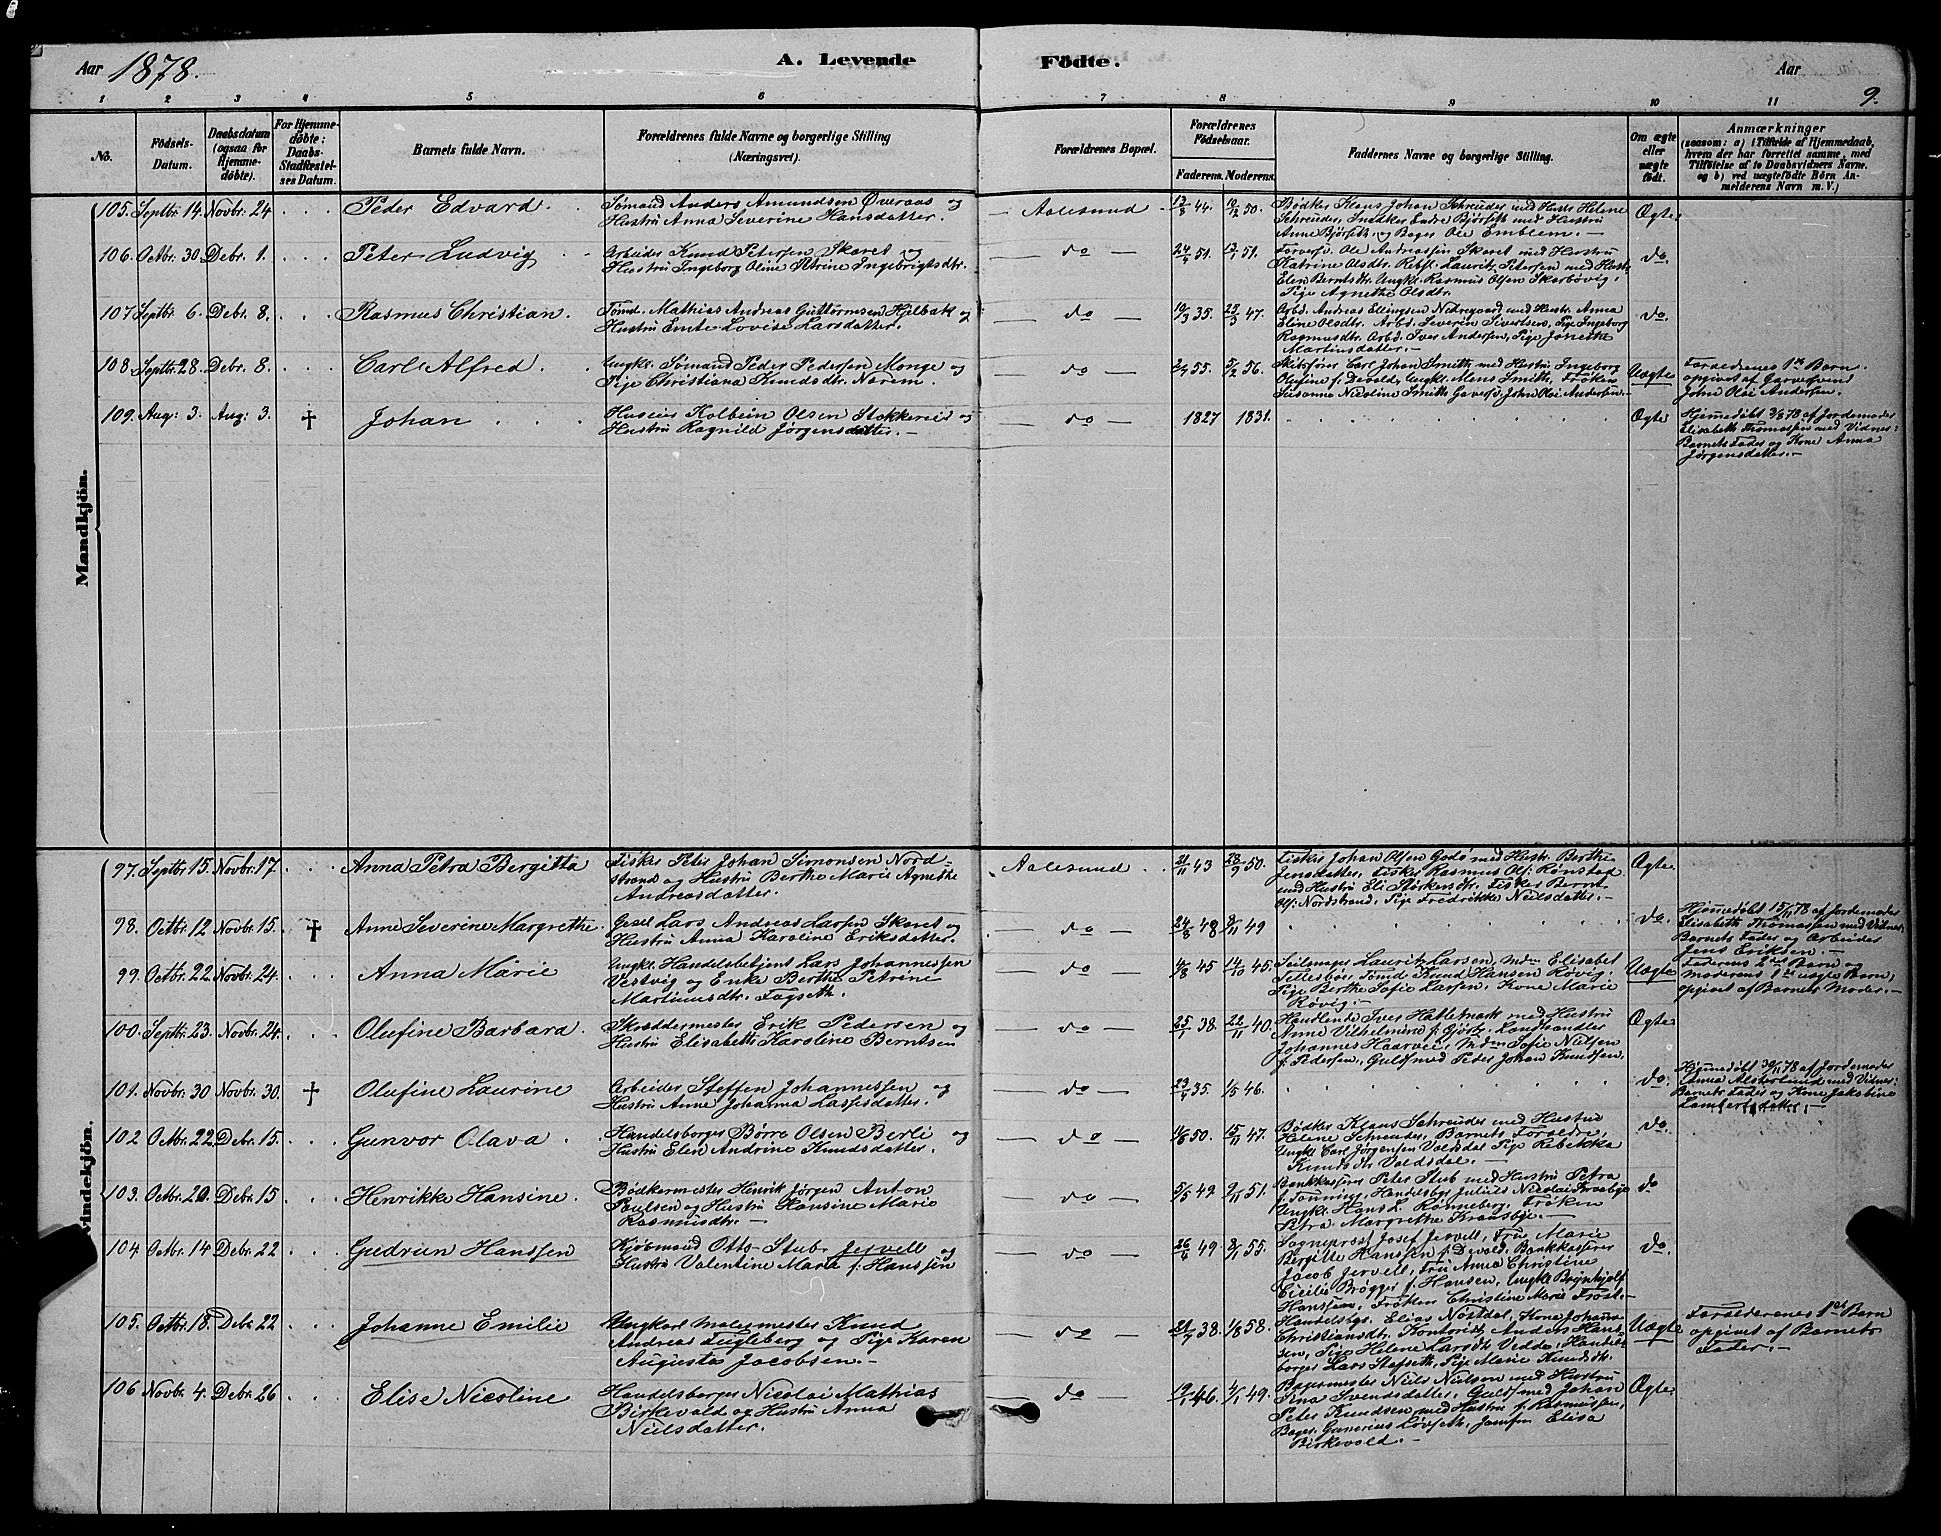 Aar 1878. A. Levende Födte. Aar 9.
1 2 3 4 5 6 7 8 9 10 11
No.
Födsels-
Datum.
Daabsdatum
(ogsaa for
Hjemme-
døbte).
For Hjemme-
döbte:
Daabs-
Stadfæstel-
ses Datum.
Barnets fulde Navn.
Forældrenes fulde Navne og borgerlige Stilling
(Næringsvei).
Forældrenes Bopæl.
Forældrenes
Födselsaar.
Faderens. Moderens.
Faddernes Navne og borgerlige Stilling.
Om ægte
eller
uægte
födt.
Anmærkninger
(saasom: a) i Tilfælde af Hjemmedaab,
hvem der har forrettet samme, med
Tilföielse af to Daabsvidners Navne.
og b) ved uægtefödte Börn An-
melderens Navn m. V.)
Mandkjön.
105. Septbr 14. Novbr. 24 Peder Edvard.
Sömand Anders Amundsen Överaas og
Hustru Anna Severine Hansdatter.
Aalesund 44. 50.
Bødker Klaus Johan Schreuder med Hustr Helene
Schreuder, Snedker Endre Bjørseth med Hustru
Anne Bjørseth, og Bager Ole Emblem.
Ægte
106. Octbr. 30. Debr. 1. Peter Ludvig
Arbeider Knud Petersen Skaret og
Hustru Ingeborg Oline Petrine Ingebrigtsdtr.
do 51. 51.
Farvers. Ole Andreassen Skaret med Hustru
Katrine Olsdtr. Rebsl. Lauritz Petersen med Hustr
Elen Berntsdtr. Ungkl. Rasmus Olsen Skarbövig.
Pige Agnethe Olsdtr.
do.
107 Septbr 6. Debr. 8. Rasmus Christian.
Tömd. Mathias Andreas Guttormsen Hjelbak og
Hustru Emte Lovise Larsdatter.
do 19/3 35. 23/3 47.
Arbd. Andreas Ellingsen Nedregaard med Hustr. Anna
Eline Olsdtr. Arbd. Severin Sivertsen, Pige Ingeborg
Rasmusdtr. Arbd. Iver Andersen, Pige Jonetta
Martinusdatter.
do.
108. Septbr. 28. Debr. 8. Carl Alfred.
Ungkr. Sömand Peder Pedersen Monge og
Pige Christiana Knudsdtr. Narem.
do 55. 5/12 56.
Skibsfører Carl Johan Smith med Hustr. Ingeborg
Olufine f. Devold, Ungkl. Mons Smith, Frøken
Susanne Nicoline Smith Garvers. John Roe Andersen.
Uægte
Forældrenes 1ste Barn.
opgivet af Garversvend
John Roe Andersen.
109. Aug: 3. Aug: 3. † Johan
Husmd Kolbein Olsen Stokkereit og
Hustru Ragnild Jørgensdatter.
do 1827 1831.
Ægte
Hjemmedöbt 3/8 78 af Jordemoder
Elisabeth Thomassen med Vidner:
Barnets Fader og Kone Anna
Jørgensdatter.
Kvindekjön.
97. Septbr 15. Novbr. 17. Anna Petra Bergitta
Fisker Peter Johan Simonsen Nord-
strand og Hustru Berthe Marie Agnethe
Andreasdatter.
Aalesund 21/11 43 28/9 50.
Fisker Johan Olsen Godø med Hustr. Berthe
Jensdatter, Fisker Rasmus Ols. Rönstad
med Hustru Eli Størkersdtr. Fisker Bernt
Ols. Nordstrand, Pige Fredrikke Nielsdatter.
Ægte
98. Octbr 12 Novbr. 15. † Anne Severine Margrethe.
Gesel Lars Andreas Larsen Skaret og
Hustru Anna Karoline Eriksdatter.
do 24/8 48 8/11 49
do.
Hjemmedöbt 15/11 78 af Jordemoder
Elisabeth Thomassen med Vidner
Barnets Fader og Arbeider
Jens Eriksen.
99. Octbr. 22. Novbr. 24. Anna Marie
Ungkl. Handelsbetjent Lars Johannessen
Vestvig og Enke Berthe Petrine
Martinusdtr. Fagseth.
do 4/8 45 14/10 45.
Seilmager Lauritz Larsen, Mdm Elisabet
Tellesbö, Tömd. Knud Hansen Røvig.
Pige Berthe Sofie Larsen. Kone Marie
Røvig.
Uægte
Faderens 2det Barn og
Moderens 1ste uægte Barn,
opgivet af Barnets Moder.
100. Septbr. 23. Novbr. 24. Olufine Barbara.
Skræddermester Erik Pedersen og
Hustru Elisabeth Karoline Berntsen
do 25/7 38. 22/11 40.
Handlende Iver Halletnask med Hustru
Anne Vilhelmine f. Gjörtz. Landhandler
Johannes Haarvei, Mdm Sofie Nielsen
f. Pedersen, Guldsmed Peder Johan Knudsen.
Ægte
101. Novbr. 30 Novbr. 30. † Olufine Laurine
Arbeider Steffen Johannessen og
Hustru Anne Johanna Lassesdatter.
do 35. 1/5 46.
do.
Hjemmedöbt 30/11 78 af Jordemoder
Anna Alsterlund med Vidner:
Barnets Fader og Kone Jakobine
Lambertsdatter.
102 Octbr. 22 Debr. 15. Gunvor Olava
Handelsborger Børre Olsen Berli og
Hustru Elen Andrine Knudsdatter.
do 50. 15/11 47.
Bødker Klaus Schreuder med Hustru
Helene Schreuder, Barnets Forældre,
Ungkl. Carl Jørgensen Valdsdal Pige Rebekka
Knudsdtr Valdsdal.
do.
103. Octbr. 20. Debr. 15 Henrikke Hansine.
Bödkermester Henrik Jörgen Anton
Paulsen og Hustru Hansine Marie
Rasmusdtr.
do 5/5 49. 9/11 51.
Bankkasserer Peter Stub med Hustru Petra
f. Tønning, Handelsbgr Julius Nicolai Kraabye
Ungkl. Hans L. Rönneberg, Frøken
Petra Margrethe Kraabye.
do
104. Octbr. 14 Debr. 22 Gudrun Hanssen
Kjöbmand Otto Stub Jervell og
Hustru Valentine Marie f. Hanssen
do 49. 8/1 55.
Sogneprest Josef Jervell, Frue Marie
Bergitte Hanssen f. Devold, Bankkasserer
Jacob Jervell, Frue Anna Christine
Cicilie Brøgger f. Hansen, Ungkl. Brynhjolf
Hanssen, Frøken Christine Marie Frost.
do.
105. Octbr. 18. Debr 22 Johanne Emilie
Ungkarl Malermester Knud
Andreas Fugleberg og Pige Karen
Augusta Jacobsen.
do 38. 1/8 58.
Handelsbgr. Elias Nøstdal, Kone Johanna
Christiansdtr. Kontorist Anders Han-
sen, Pige Helene Larsdtr. Vedde, Handels-
borger Lars Stafseth, Pige Marie Knudsdtr.
Uægte
Forældrenes 1ste Barn
opgivet af Barnets
Fader.
106 Novbr. 4. Debr. 26 Elise Nicoline
Handelsborger Nicolai Mathias
Birkevold og Hustru Anna
Nielsdatter.
do 46. 49.
Bagermester Niels Nielsen med Hustru
Sina Svendsdatter, Guldsmed Johan
Peter Knudsen med Hustru f. Rasmussen,
Bager Gunerius Lövseth, Jomfru Elisa
Birkevold.
Ægte